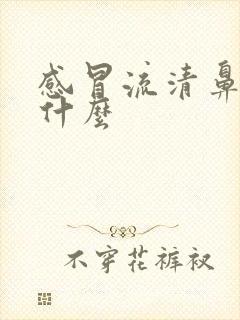 感冒流清鼻
什麼
不穿花裤衩